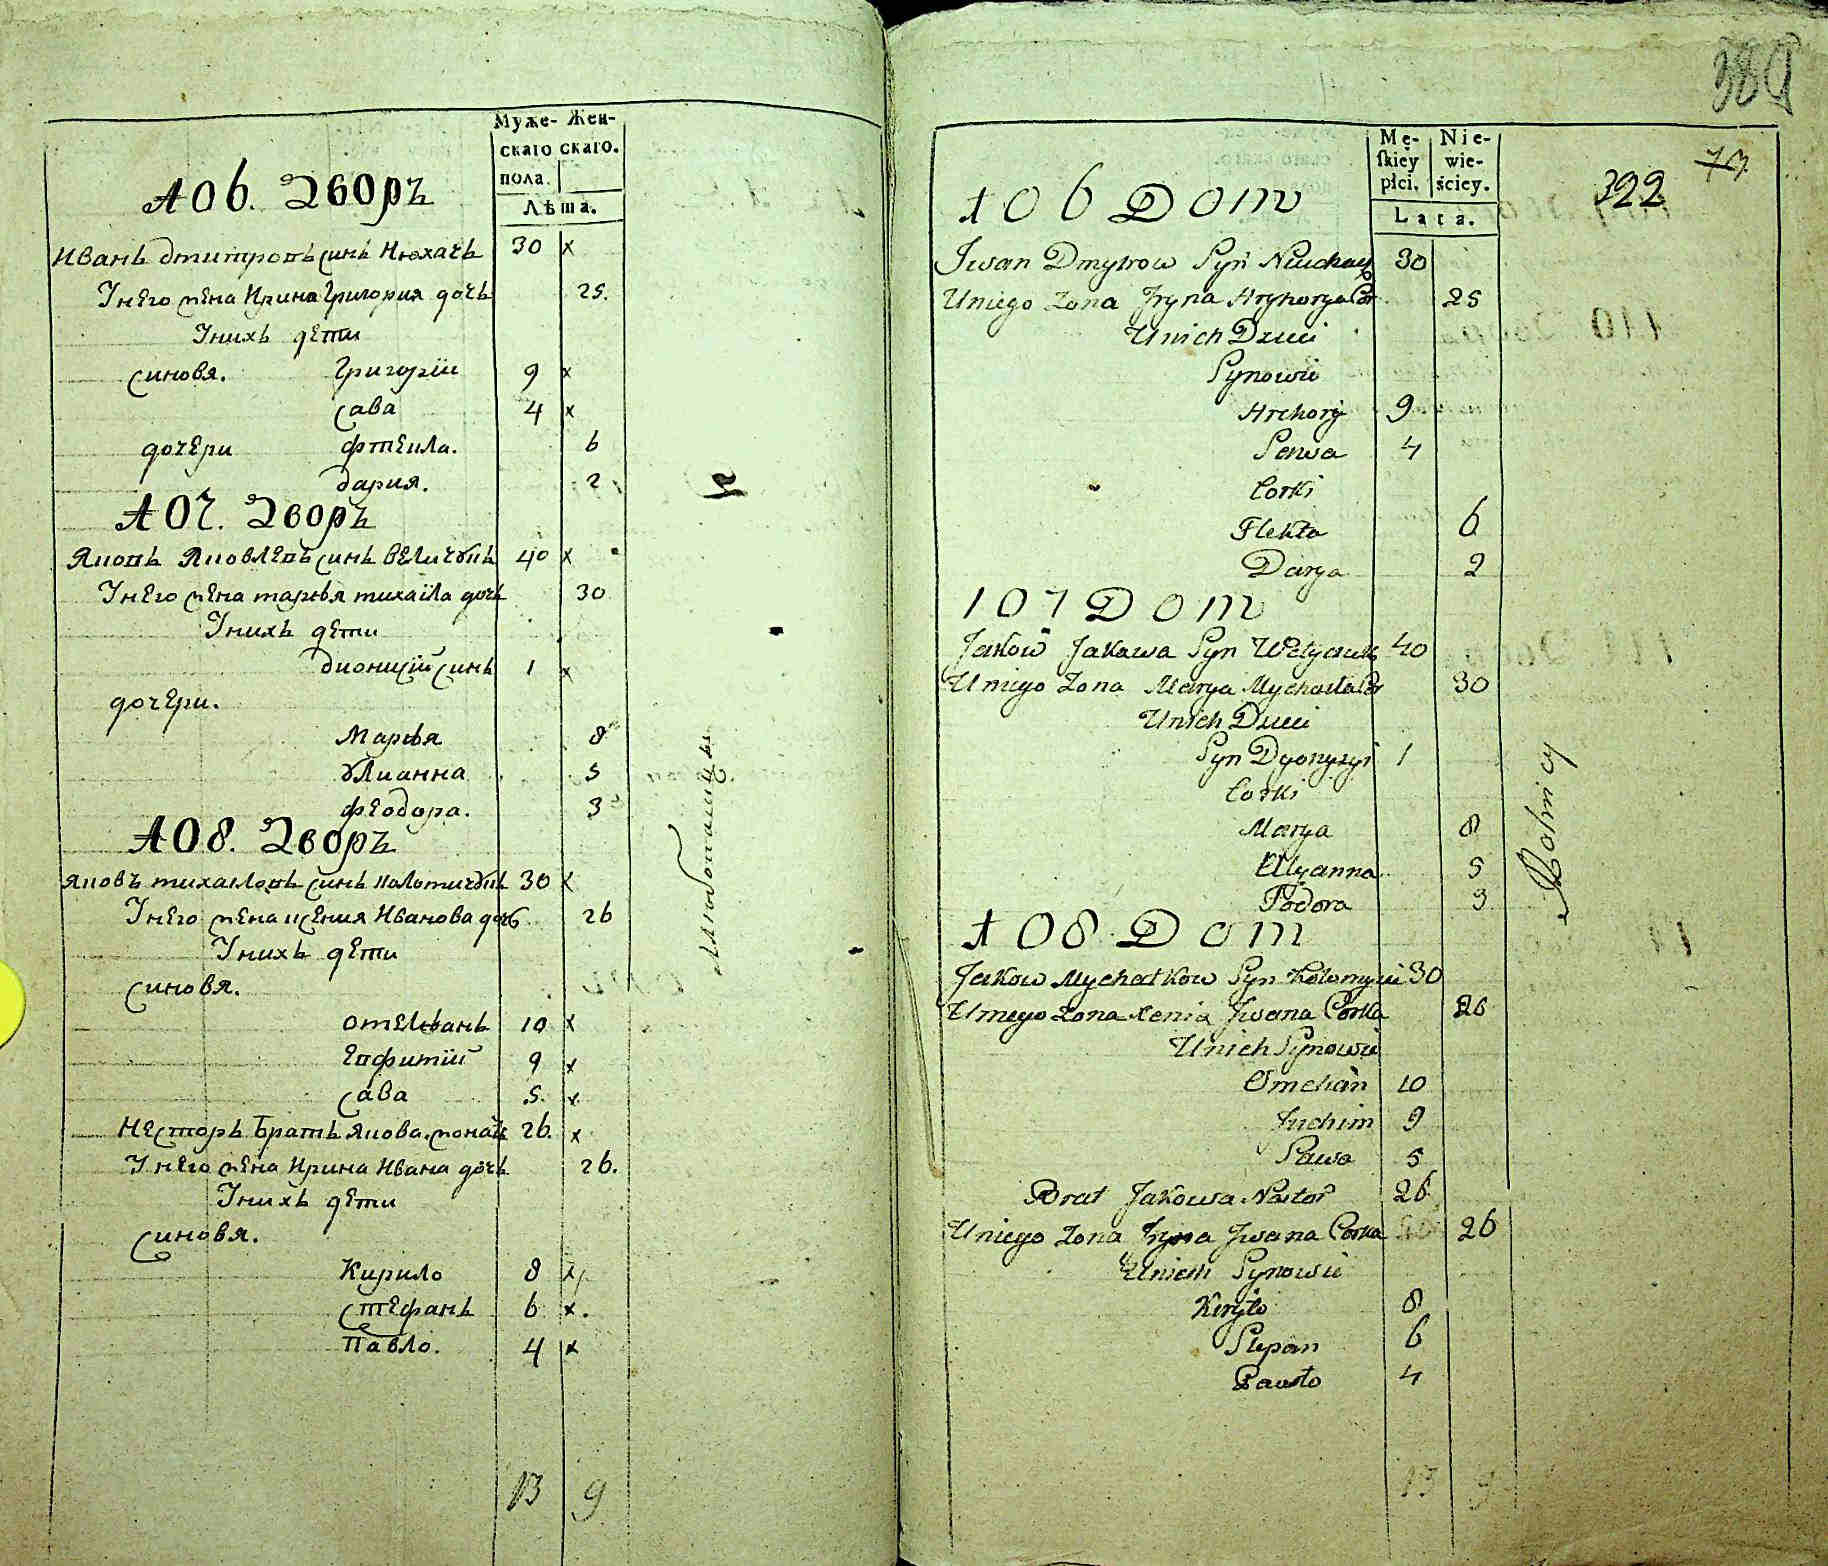 Муже- Жен-
скаго скаго.
пола.
Лѣта.
106. Дворъ
Иванъ Дмитровъ синъ Нюхачъ 30 x
У него жена Ирина Григория дочъ 25.
У нихъ дети
синовя. Григорій 9 x
Сава 4 x
дочери Фтекла. 6
Дария. 2
107. Дворъ
Яковъ Яковлевъ синъ Величукъ 40 x
У него жена Маръя Михайла дочъ 30
У нихъ дети
Дионисій синъ 1 x
дочери.
Маръя 8
Улианна 5
Феодора. 3
108. Дворъ
Яковъ Михалковъ синъ Коломичукъ 30 x
У него жена Ксения Иванова дочъ 26
У нихъ дети
синовя.
Омелянъ 10 x
Евфимій 9 x
Сава 5. x
Несторъ Братъ Якова. 26. x
У него жена Ирина Ивана дочъ 26.
У нихъ дети
синовя.
Кирило 8 x
Стефанъ 6 x.
Павло. 4 x
13 9
389
322
Mę- Nie-
skiey wie-
płci. ściey.
Lata.
106 Dom
Jwan Dmytrow Syn Niuchacz 30
Uniego Zona Jryna Hryhorya Cor 25
Unich Dzieci
Synowie
Hrehory 9
Sawa 4
Corki
Flekta 6
Darya 2
107 Dom
Jakow Jakowa Syn Welyczuk 40
Uniego Zona Marya Mychaiła Cor 30
Unich Dzieci
Syn Dyonyzyi 1
Corki
Marya 8
Ulyanna 5
Fodora 3
Rolnicy
108 Dom
Jakow Mychałkow Syn 30
Uniego Zona Xenia Jwana Corka 26
Unich Synowie
Omelian 10
Juchim 9
Sawa 5
Brat Jakowa Nestor 26
Uniego Zona Jryna Jwana Corka 26
Unich Synowie
Keryło 8
Stepan 6
Pawło 4
13 9